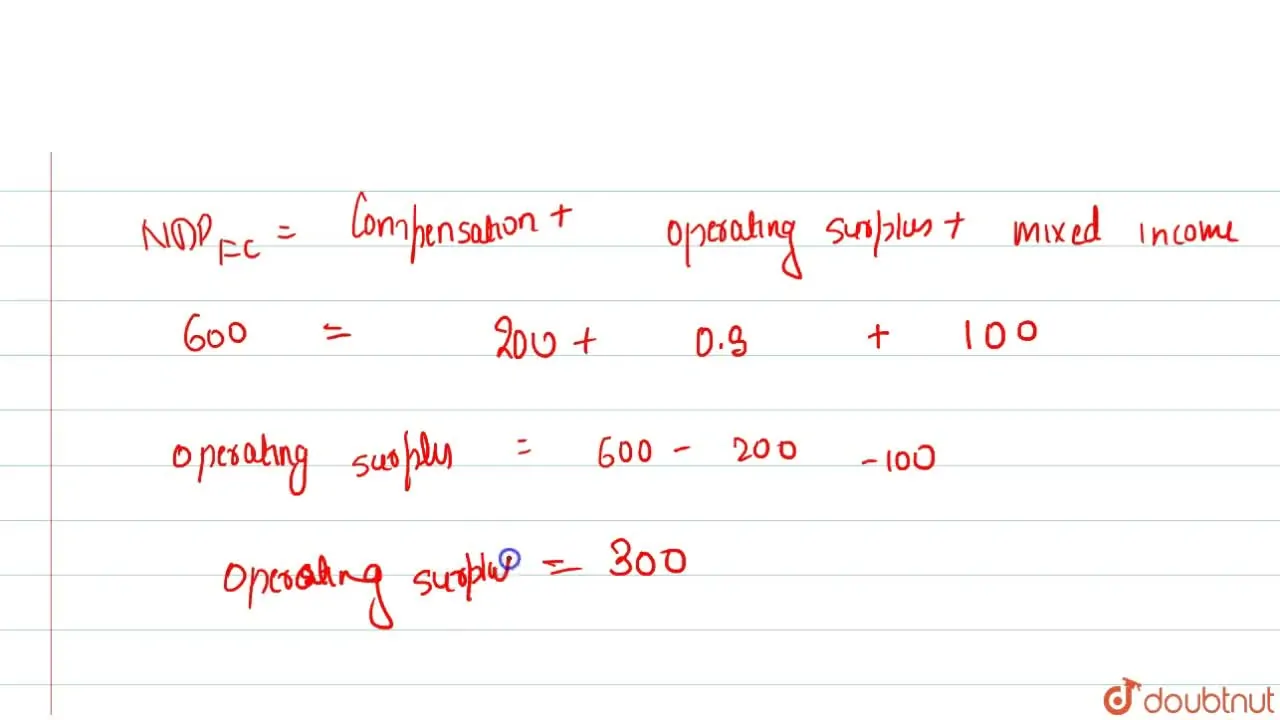 NDP FC = Compensation + operating surplus + mixed income
600 = 200 + 0.S + 100
operating surplus = 600 - 200 - 100
operating surplus = 300
doubtnut